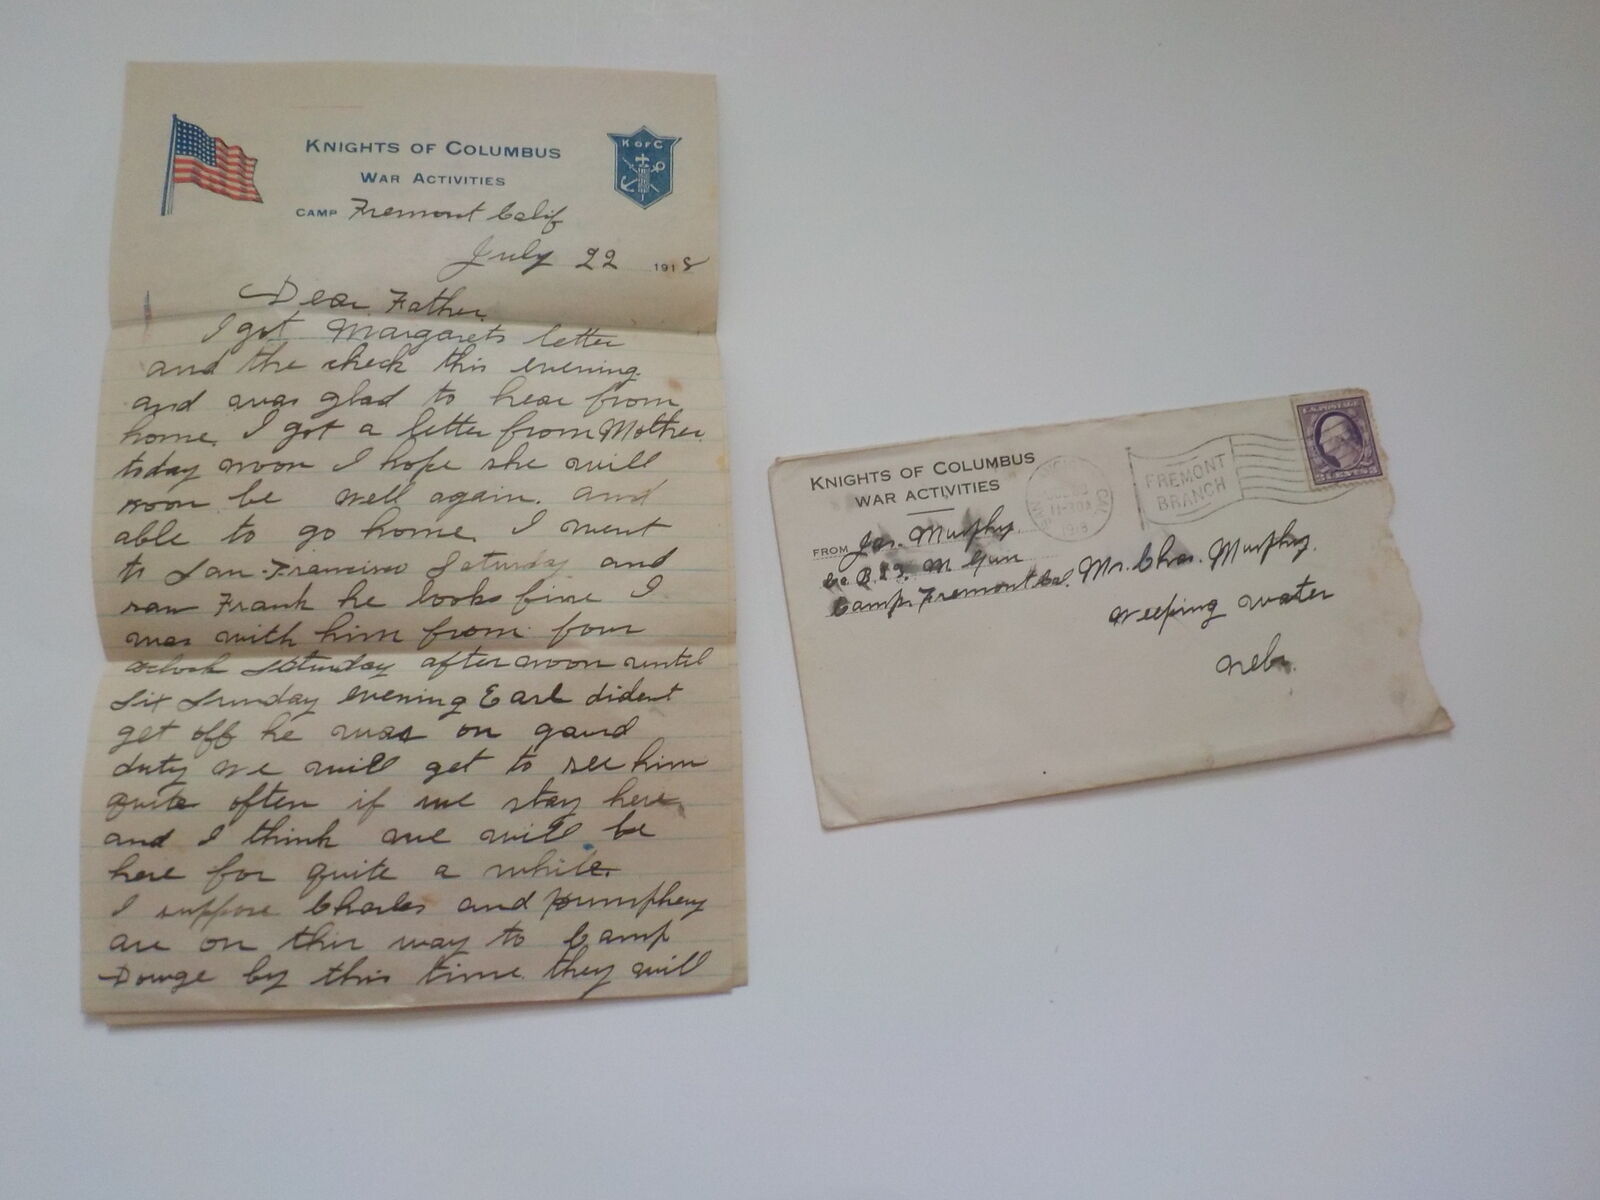 KNIGHTS OF COLUMBUS
WAR ACTIVITIES
K OF C
CAMP Fremont Calif
July 22 1918
Dear Father.
I got Margarets letter
and the check this evening.
and was glad to hear from
home. I got a letter from Mother
today noon I hope she will
soon be well again. and
able to go home. I went
to San. Francisco Saturday and
saw Frank he looks fine I
was with him from four
oclock Saturday after noon until
six Sunday evening Earl dident
get off he was on gaurd
duty we will get to see him
quite often if we stay here
and I think we will be
here for quite a while.
I suppose Charles and Humphery
are on thir way to Camp
Dowge by this time. they will
KNIGHTS OF COLUMBUS
WAR ACTIVITIES
FROM Jas. Murphy.
Co. B. M. Gun
Camp. Fremont Cal.
11-30A
1918
FREMONT
BRANCH
U.S. POSTAGE
Mr. Chas. Murphy.
Weeping water
Nebr.